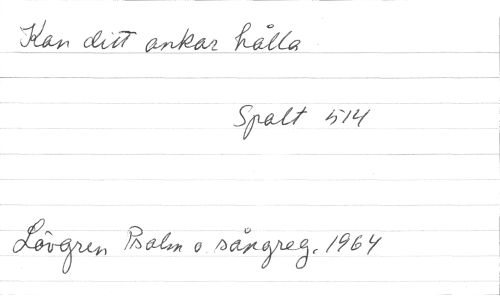 Kan ditt ankar hålla
Spalt 514
Lövgren Psalm o sångreg. 1964